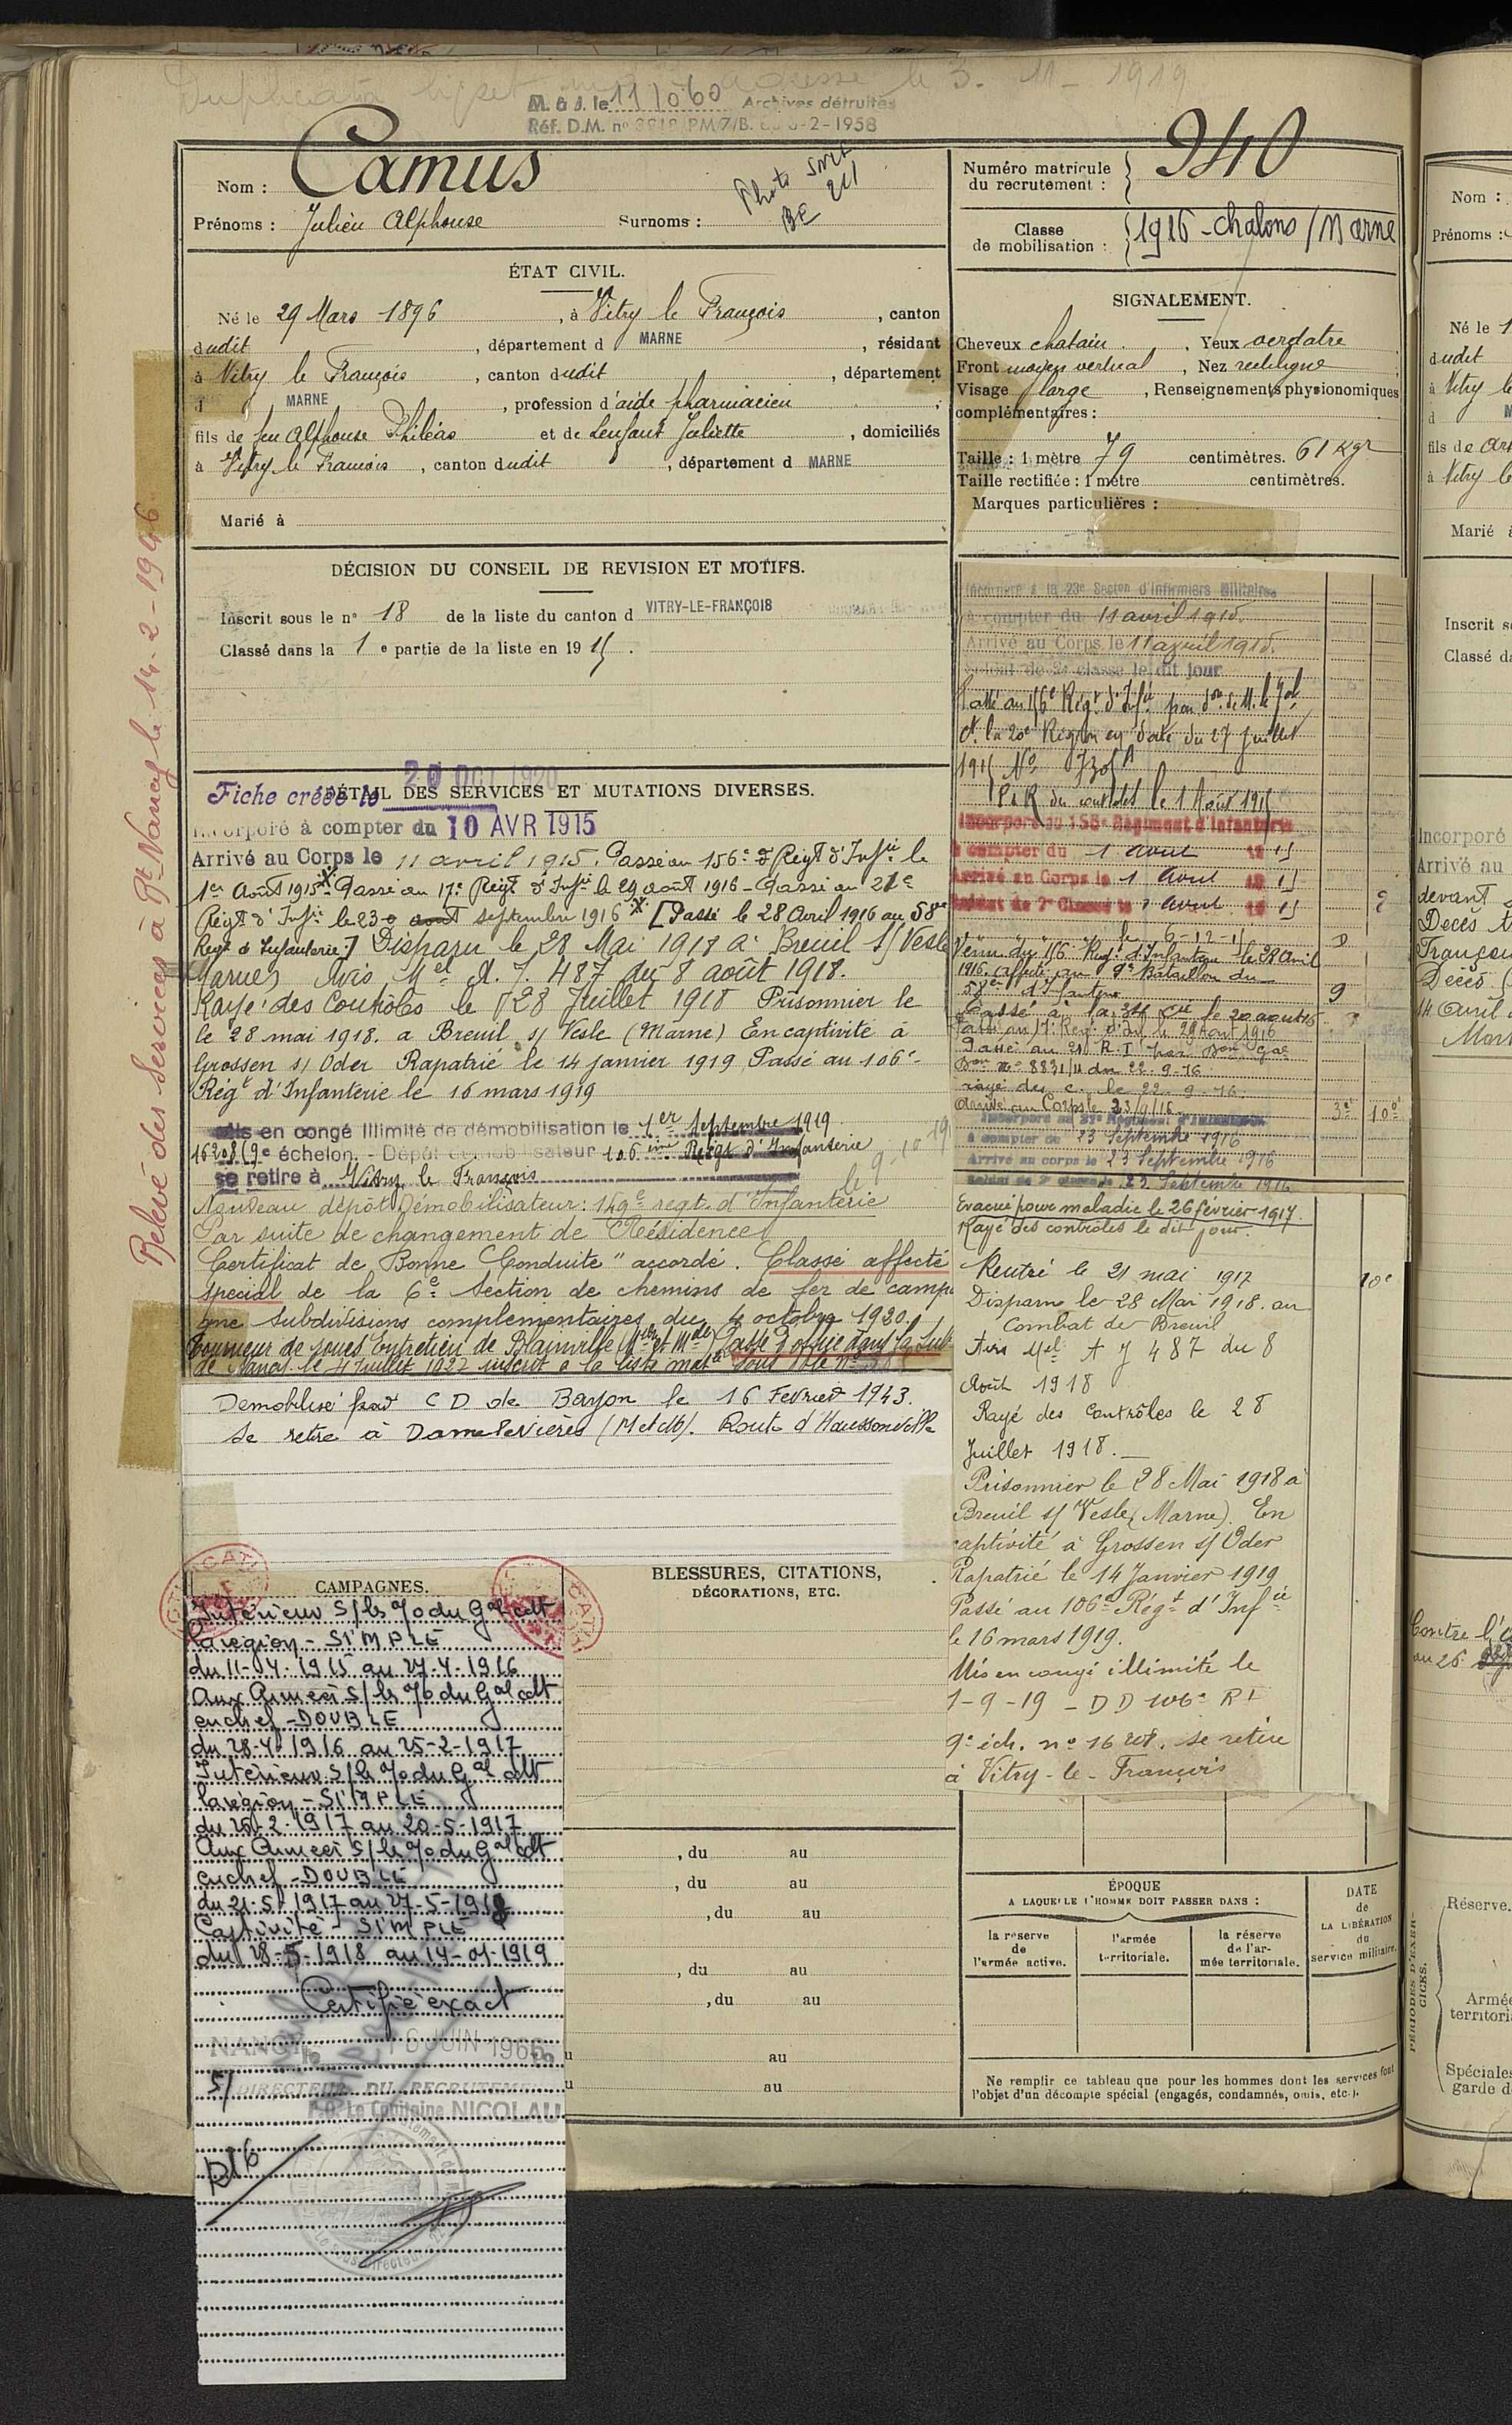 Duplicata livret adressé le 3-11-1919
M. à J. le 11 10 60 Archives détruites
Réf. D.M. n° PM/7/B. 6-2-1958
Nom : Camus
Prénoms : Julien Alphonse Surnoms :
Photo
BC 211
Numéro matricule du recrutement : 940
Classe de mobilisation : 1916 - chalons / Marne
ÉTAT CIVIL.
Né le 29 Mars 1896, à Vitry le François, canton
dudit, département d MARNE, résidant
à Vitry le François, canton dudit, département
d MARNE, profession d'aide pharmacien
fils de feu Alphonse Philéas et de Lenfant Juliette, domiciliés
à Vitry le François, canton dudit, département d MARNE
Marié à
SIGNALEMENT.
Cheveux chatain. Yeux verdatre
Front moyen vertical, Nez rectiligne
Visage large, Renseignements physionomiques
complémentaires :
Taille : 1 mètre 79 centimètres. 61 Kgr
Taille rectifiée : 1 mètre centimètres.
Marques particulières :
DÉCISION DU CONSEIL DE REVISION ET MOTIFS.
Inscrit sous le n° 18 de la liste du canton d VITRY-LE-FRANÇOIS
Classé dans la 1e partie de la liste en 1915.
Relevé des services à Rt Nancy le 14-2-1946
Fiche créée le 20 OCT 1920
DÉTAIL DES SERVICES ET MUTATIONS DIVERSES.
Incorporé à compter du 10 AVR 1915
Arrivé au Corps le 11 avril 1915. Passé au 156e Régt d'Infie le
1er Août 1915 X Passé au 17e Régt d'Infie le 29 août 1916 - Passé au 21e
Régt d'Infie le 23 août septembre 1916 X [Passé le 28 Avril 1916 au 58e
Regt d'Infanterie] Disparu le 28 Mai 1918 à Breuil s/ Vesle
(Marne) Avis Mel A. J. 487 du 8 août 1918.
Rayé des Contrôles le 28 Juillet 1918 Prisonnier le
le 28 mai 1918. a Breuil s/ Vesle (Marne) En captivité à
Grossen s/ Oder Rapatrié le 14 janvier 1919 Passé au 106e
Régt d'Infanterie le 16 mars 1919
Mis en congé illimité de démobilisation le 1er Septembre 1919
16208 (9e échelon. - Dépôt démobilisateur 106eme Régt d'Infanterie
se retire à Vitry le François
le 9-10-19
Nouveau dépôt Démobilisateur : 149e regt. d'Infanterie
Par suite de changement de Résidence
Certificat de "Bonne Conduite" accordé. Classé affecté
spécial de la 6e Section de chemins de fer de campa
gne Subdivisions complémentaires du 4 octobre 1920.
Tourneur de roues Entretien de Blainville (Mthe et Mlle) Passé d'office dans la Sub
de Nancy le 4 Juillet 1922 inscrit à la liste matle sous le n°
Démobilisé par C D de Bayon le 16 Fevrier 1943.
Se retire à Damelevières (M et M). Route d'Haussonville
Incorporé à la 23e Section d'Infirmiers Militaires
à compter du 11 avril 1915.
Arrivé au Corps le 11 avril 1915.
Soldat de 2e classe le dit jour
Passé au 156e Régt d'Infie par don de M. le Gal
Ct. la 20e Région en date du 27 juillet
1915 No
rayé des contrôles le 1 Août 1915
Incorporé au 156e Régiment d'Infanterie
à compter du 1 août 1915
Arrivé au Corps le 1 août 1915
Soldat de 2e Classe le 1 août 1915
le 6-12-15
Venu du 156 Regt d'Infanterie le 28 Avril
1916. Affecté au 9e Bataillon du
58e d'Infanterie
Passé à la Cie le 20 août 16
Passé au 17e Regt d'Inf le 29 Aout 1916
Passé au 21 R.I par Don Gal
Don n° 8831/11 du 22-9-16
rayé des c. le 22-9-16
Arrivé au Corps le 23/9/16
Incorporé au 21e Régiment d'Infanterie
à compter du 23 Septembre 1916
Arrivé au corps le 23 Septembre 1916
Soldat de 2e classe le 23 Septembre 1916
Evacué pour maladie le 26 février 1917
Rayé des contrôles le dit jour.
Rentré le 21 mai 1917
Disparu le 28 Mai 1918. au
Combat de Breuil
Avis Mel A J 487 du 8
Août 1918
Rayé des Contrôles le 28
Juillet 1918.
Prisonnier le 28 Mai 1918 à
Breuil s/ Vesle (Marne). En
captivité à Grossen s/ Oder
Rapatrié le 14 Janvier 1919
Passé au 106e Régt d'Infie
le 16 mars 1919.
Mis en congé illimité le
1-9-19 - D D 106e RI
9e éch. n° 16208. se retire
à Vitry-le-François
D
9
3e
10e
10e
CAMPAGNES.
Intérieur S/ les %o du Gal cdt
la région - SIMPLE
du 11-04-1915 au 27-4-1916
Aux Armées S/ les %o du Gal cdt
en chef - DOUBLE
du 28-4-1916 au 25-2-1917
Intérieur S/ les %o du Gal cdt
la région - SIMPLE
du 26-2-1917 au 20-5-1917
Aux Armées S/ les %o du Gal cdt
en chef - DOUBLE
du 21-5-1917 au 27-5-1918
Captivité - SIMPLE
du 28-5-1918 au 14-01-1919
Certifié exact
NANCY le 16 JUIN 1966
S/ DIRECTEUR DU RECRUTEMENT
P.O. Le Capitaine NICOLAU
BLESSURES, CITATIONS,
DÉCORATIONS, ETC.
, du au
, du au
, du au
, du au
, du au
au
au
ÉPOQUE
A LAQUELLE L'HOMME DOIT PASSER DANS :
la réserve de l'armée active.
l'armée territoriale.
la réserve de l'armée territoriale.
DATE de LA LIBÉRATION du service militaire.
Ne remplir ce tableau que pour les hommes dont les services font
l'objet d'un décompte spécial (engagés, condamnés, omis, etc.).
Nom :
Prénoms :
Né le 1
dudit
à Vitry le
d M
fils de
à Vitry le
Marié à
Inscrit s
Classé da
Incorporé
Arrivé au
devant
Décès
François
Décès
14 Avril
Mort
Contre l'
au 26
PÉRIODES D'EXERCICES.
Réserve.
Armée
territori
Spéciales
garde d